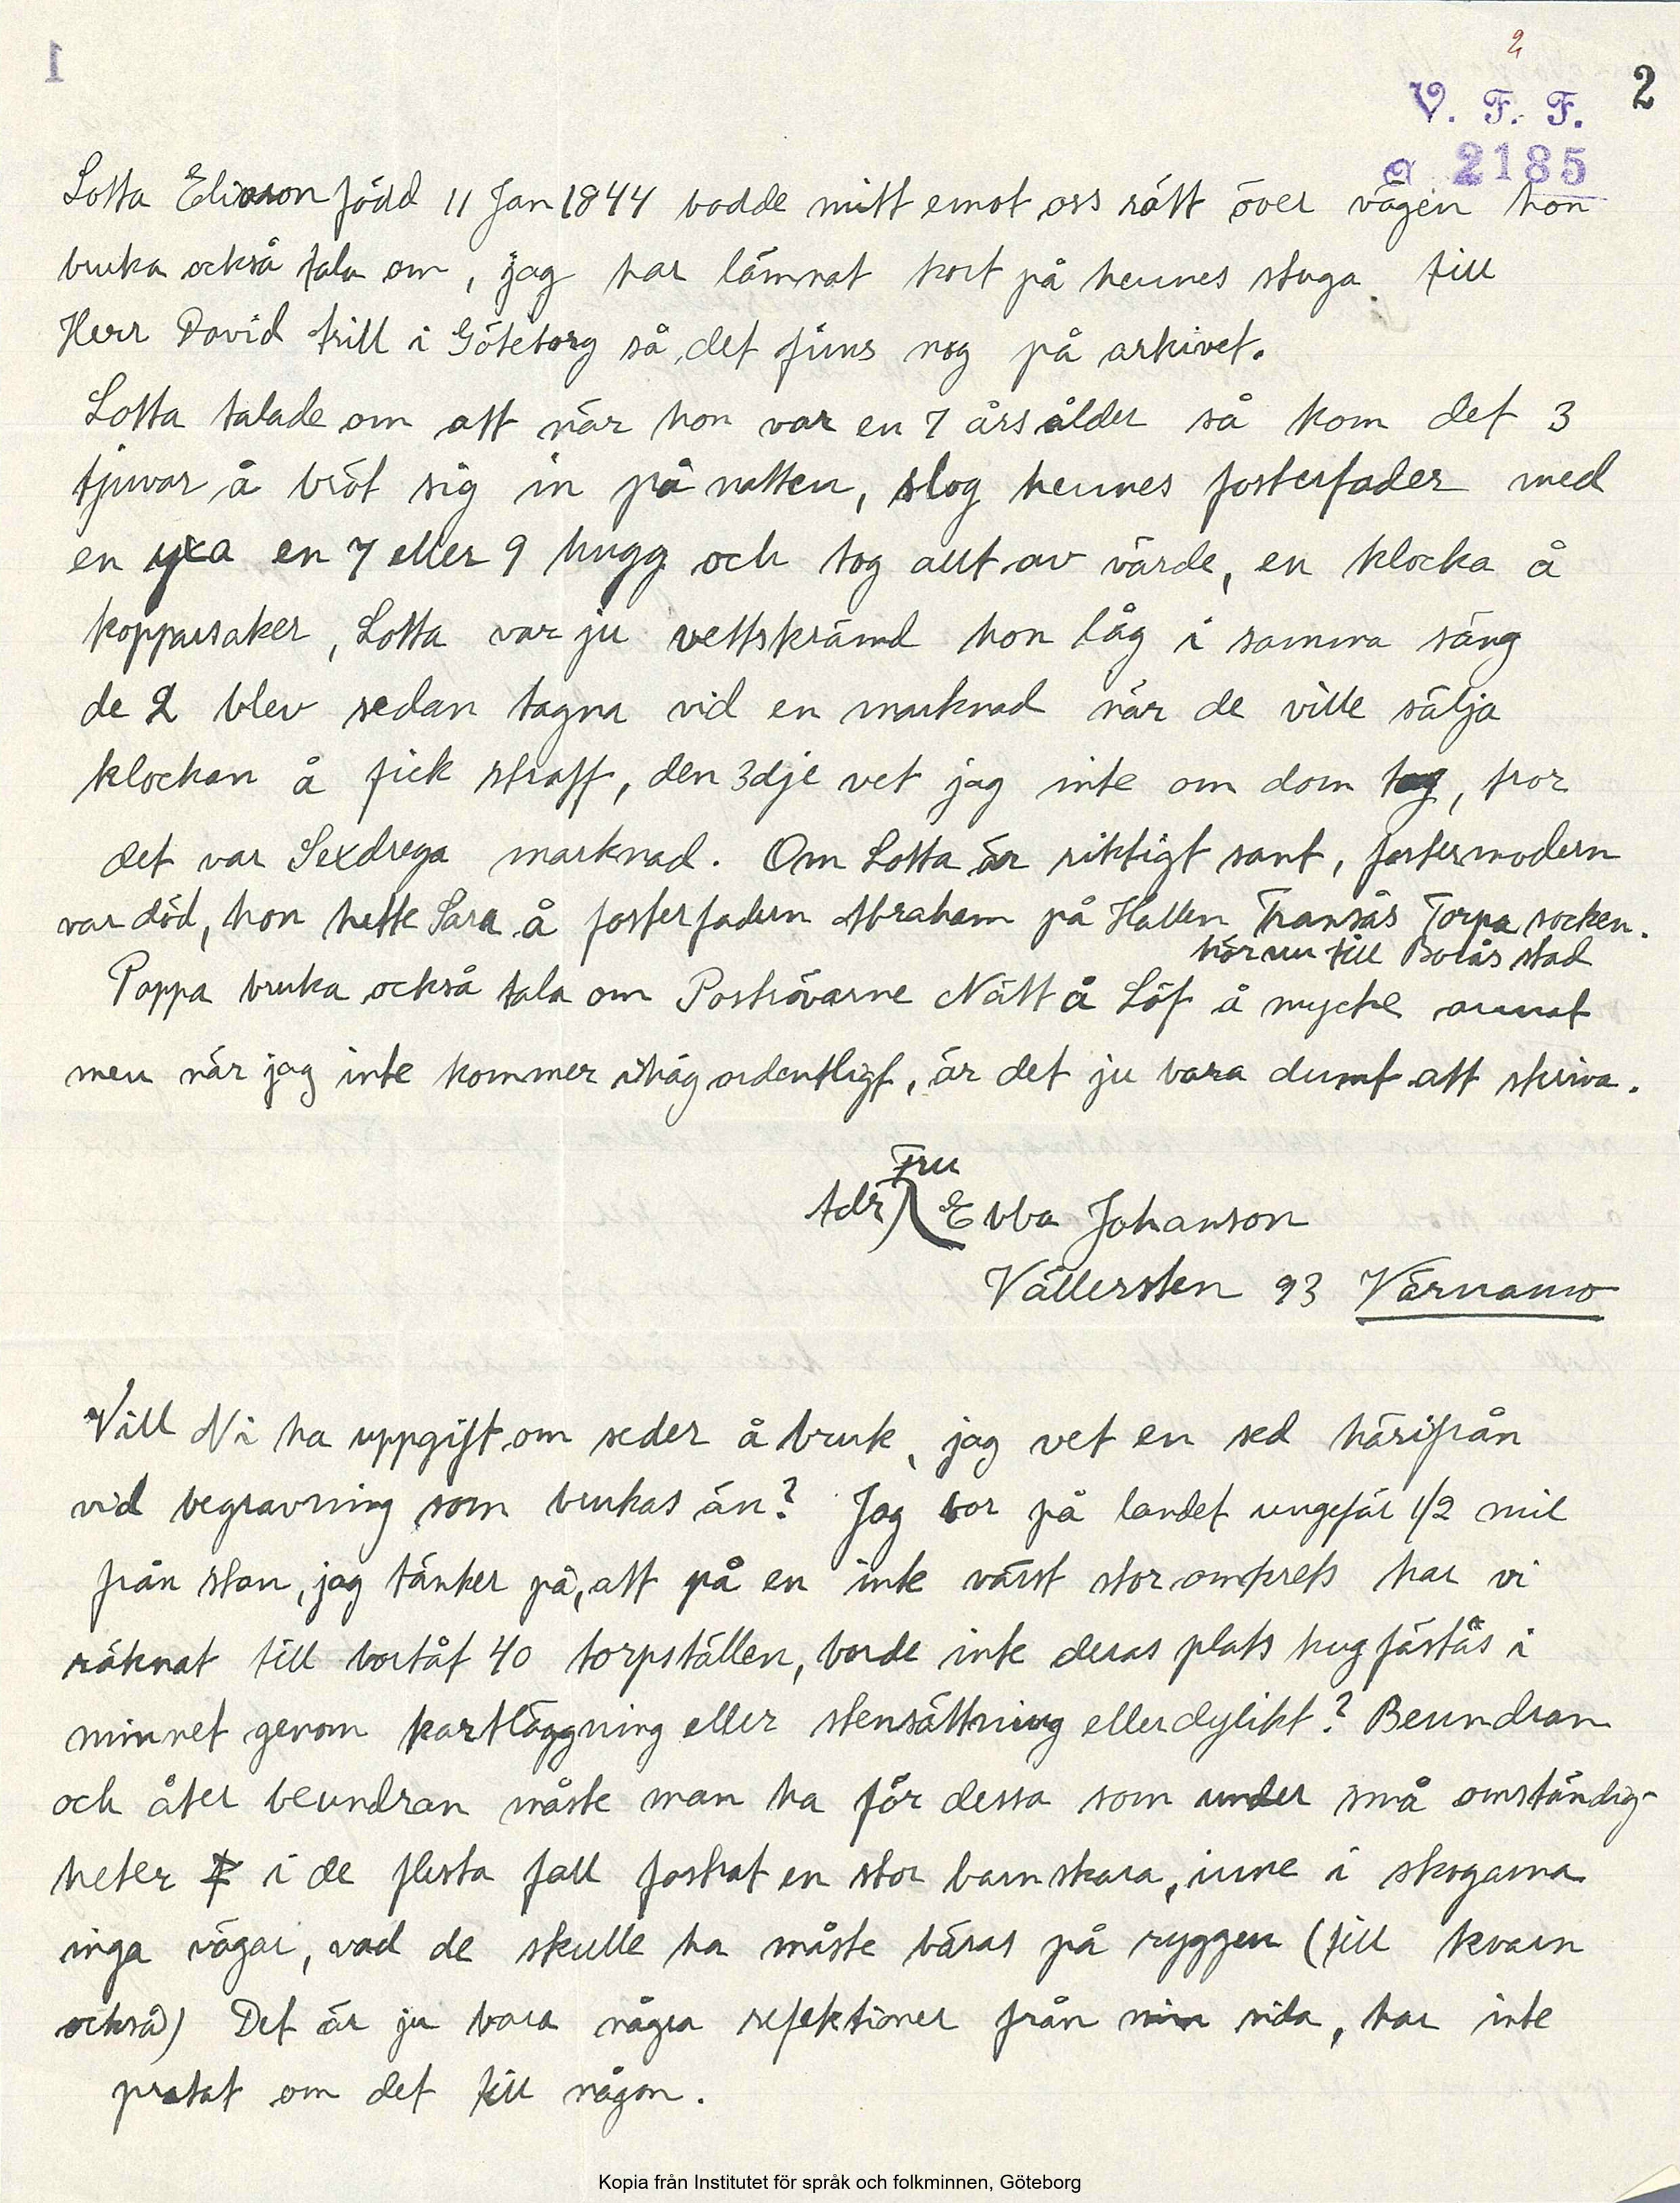 2
2
V. F. F.
a 2185
Lotta Eliason född 11 Jan 1844 bodde mitt emot oss rätt över vägen hon
bruka också tala om, jag har lämnat kort på hennes stuga till
Herr David trill i Göteborg så det finns nog på arkivet.
Lotta talade om att när hon var en 7 års ålder så kom det 3
tjuvar å bröt sig in på natten, slog hennes fosterfader med
en yxa en 7 eller 9 hugg och tog allt av värde, en klocka å
kopparsaker, Lotta var ju vettskrämd hon låg i samma säng
de 2 blev sedan tagna vid en marknad när de ville sälja
klockan å fick straff, den 3dje vet jag inte om dom tog, tror
det var Sexdrega marknad. Om Lotta är riktigt sant, fostermodern
var död, hon hette Sara å fosterfadern Abraham på Hallen Tränsås Torpa socken.
hör nu till Borås stad
Pappa bruka också tala om Poströvarne Nätt å Löf å mycke annat
men när jag inte kommer ihåg ordentligt, är det ju bara dumt att skriva.
Fru
Adr) Ebba Johanson
Vällersten 93 Värnamo
Vill Ni ha uppgift om seder å bruk, jag vet en sed härifrån
vid begravning som brukas än? Jag bor på landet ungefär 1/2 mil
från stan, jag tänker på, att på en inte värst stor omkrets har vi
räknat till bortåt 40 torpställen, borde inte deras plats hugfästäs i
minnet genom kartläggning eller stensättning eller dylikt? Beundran
och åter beundran måste man ha för dessa som under små omständig-
heter i de flesta fall fostrat en stor barnskara, inne i skogarna
inga vägar, vad de skulle ha måste bäras på ryggen (till kvarn
också) Det är ju bara några refektioner från min sida, har inte
pratat om det till någon.
Kopia från Institutet för språk och folkminnen, Göteborg